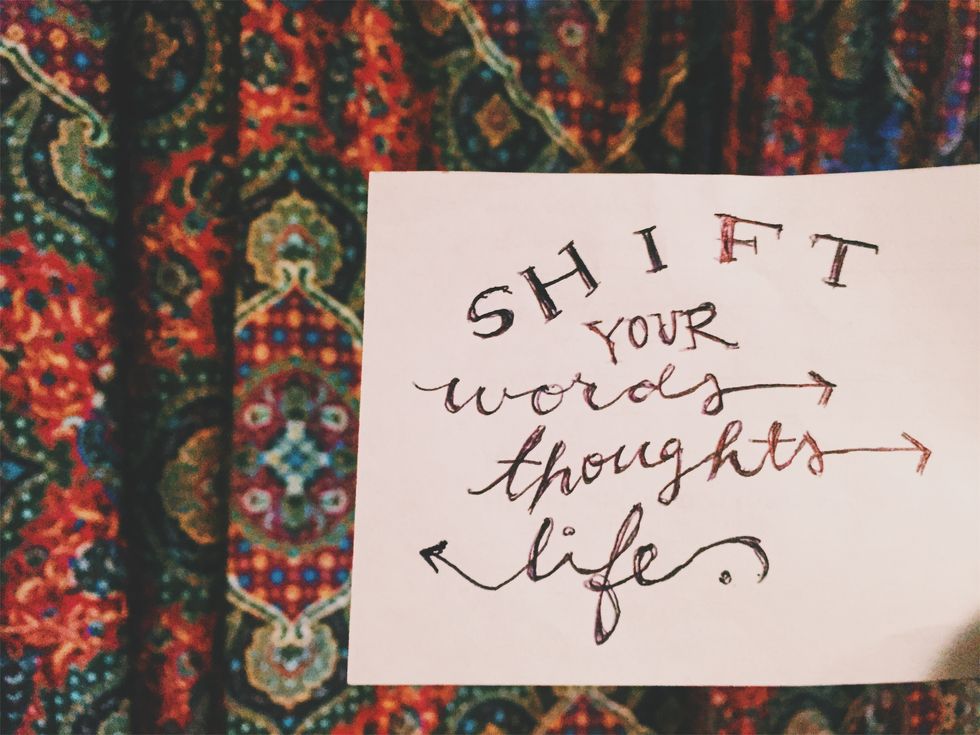 SHIFT
YOUR
words
thoughts
life.